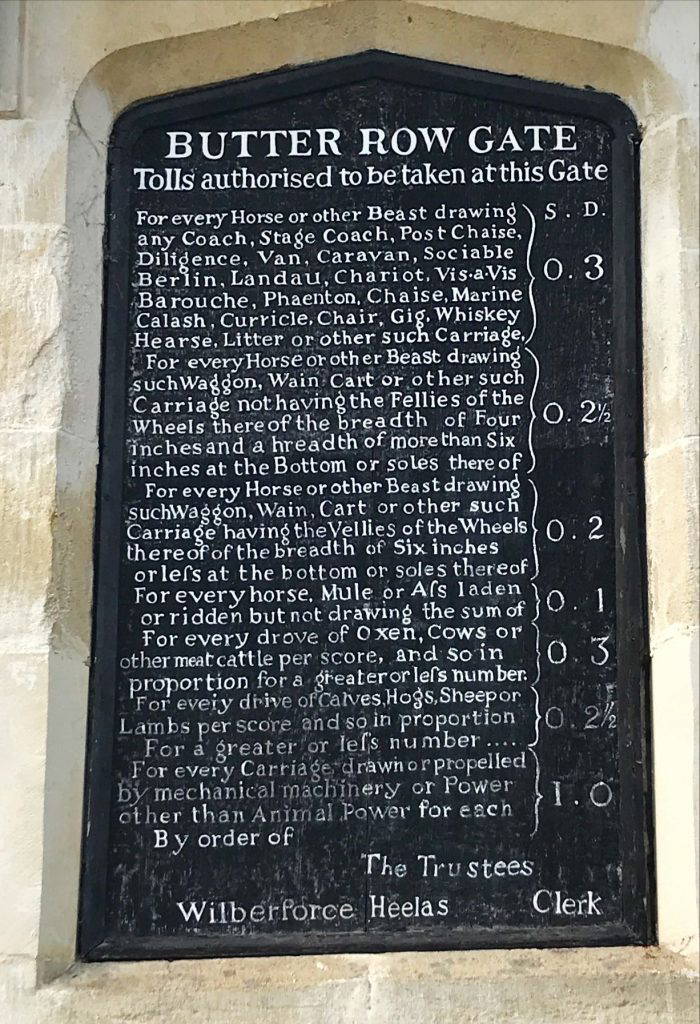 BUTTER ROW GATE
Tolls authorised to be taken at this Gate
For every Horse or other Beast drawing S . D.
any Coach, Stage Coach, Post Chaise,
Diligence, Van, Caravan, Sociable
Berlin, Landau, Chariot, Vis-a-Vis 0 . 3
Barouche, Phaenton, Chaise, Marine
Calash, Curricle, Chair, Gig, Whiskey
Hearse, Litter or other such Carriage,
For every Horse or other Beast drawing
such Waggon, Wain Cart or other such
Carriage not having the Fellies of the
Wheels thereof the breadth of Four 0 . 2½
inches and a hreadth of more than Six
inches at the Bottom or soles there of
For every Horse or other Beast drawing
such Waggon, Wain, Cart or other such
Carriage having the Vellies of the Wheels 0 . 2
thereof of the breadth of Six inches
or leſs at the bottom or soles thereof
For every horse, Mule or Aſs laden 0 . 1
or ridden but not drawing the sum of
For every drove of Oxen, Cows or
other meat cattle per score, and so in 0 . 3
proportion for a greater or leſs number.
For every drive of Calves, Hogs, Sheep or
Lambs per score and so in proportion 0 . 2½
For a greater or leſs number .....
For every Carriage drawn or propelled
by mechanical machinery or Power 1 . 0
other than Animal Power for each
By order of
The Trustees
Wilberforce Heelas Clerk